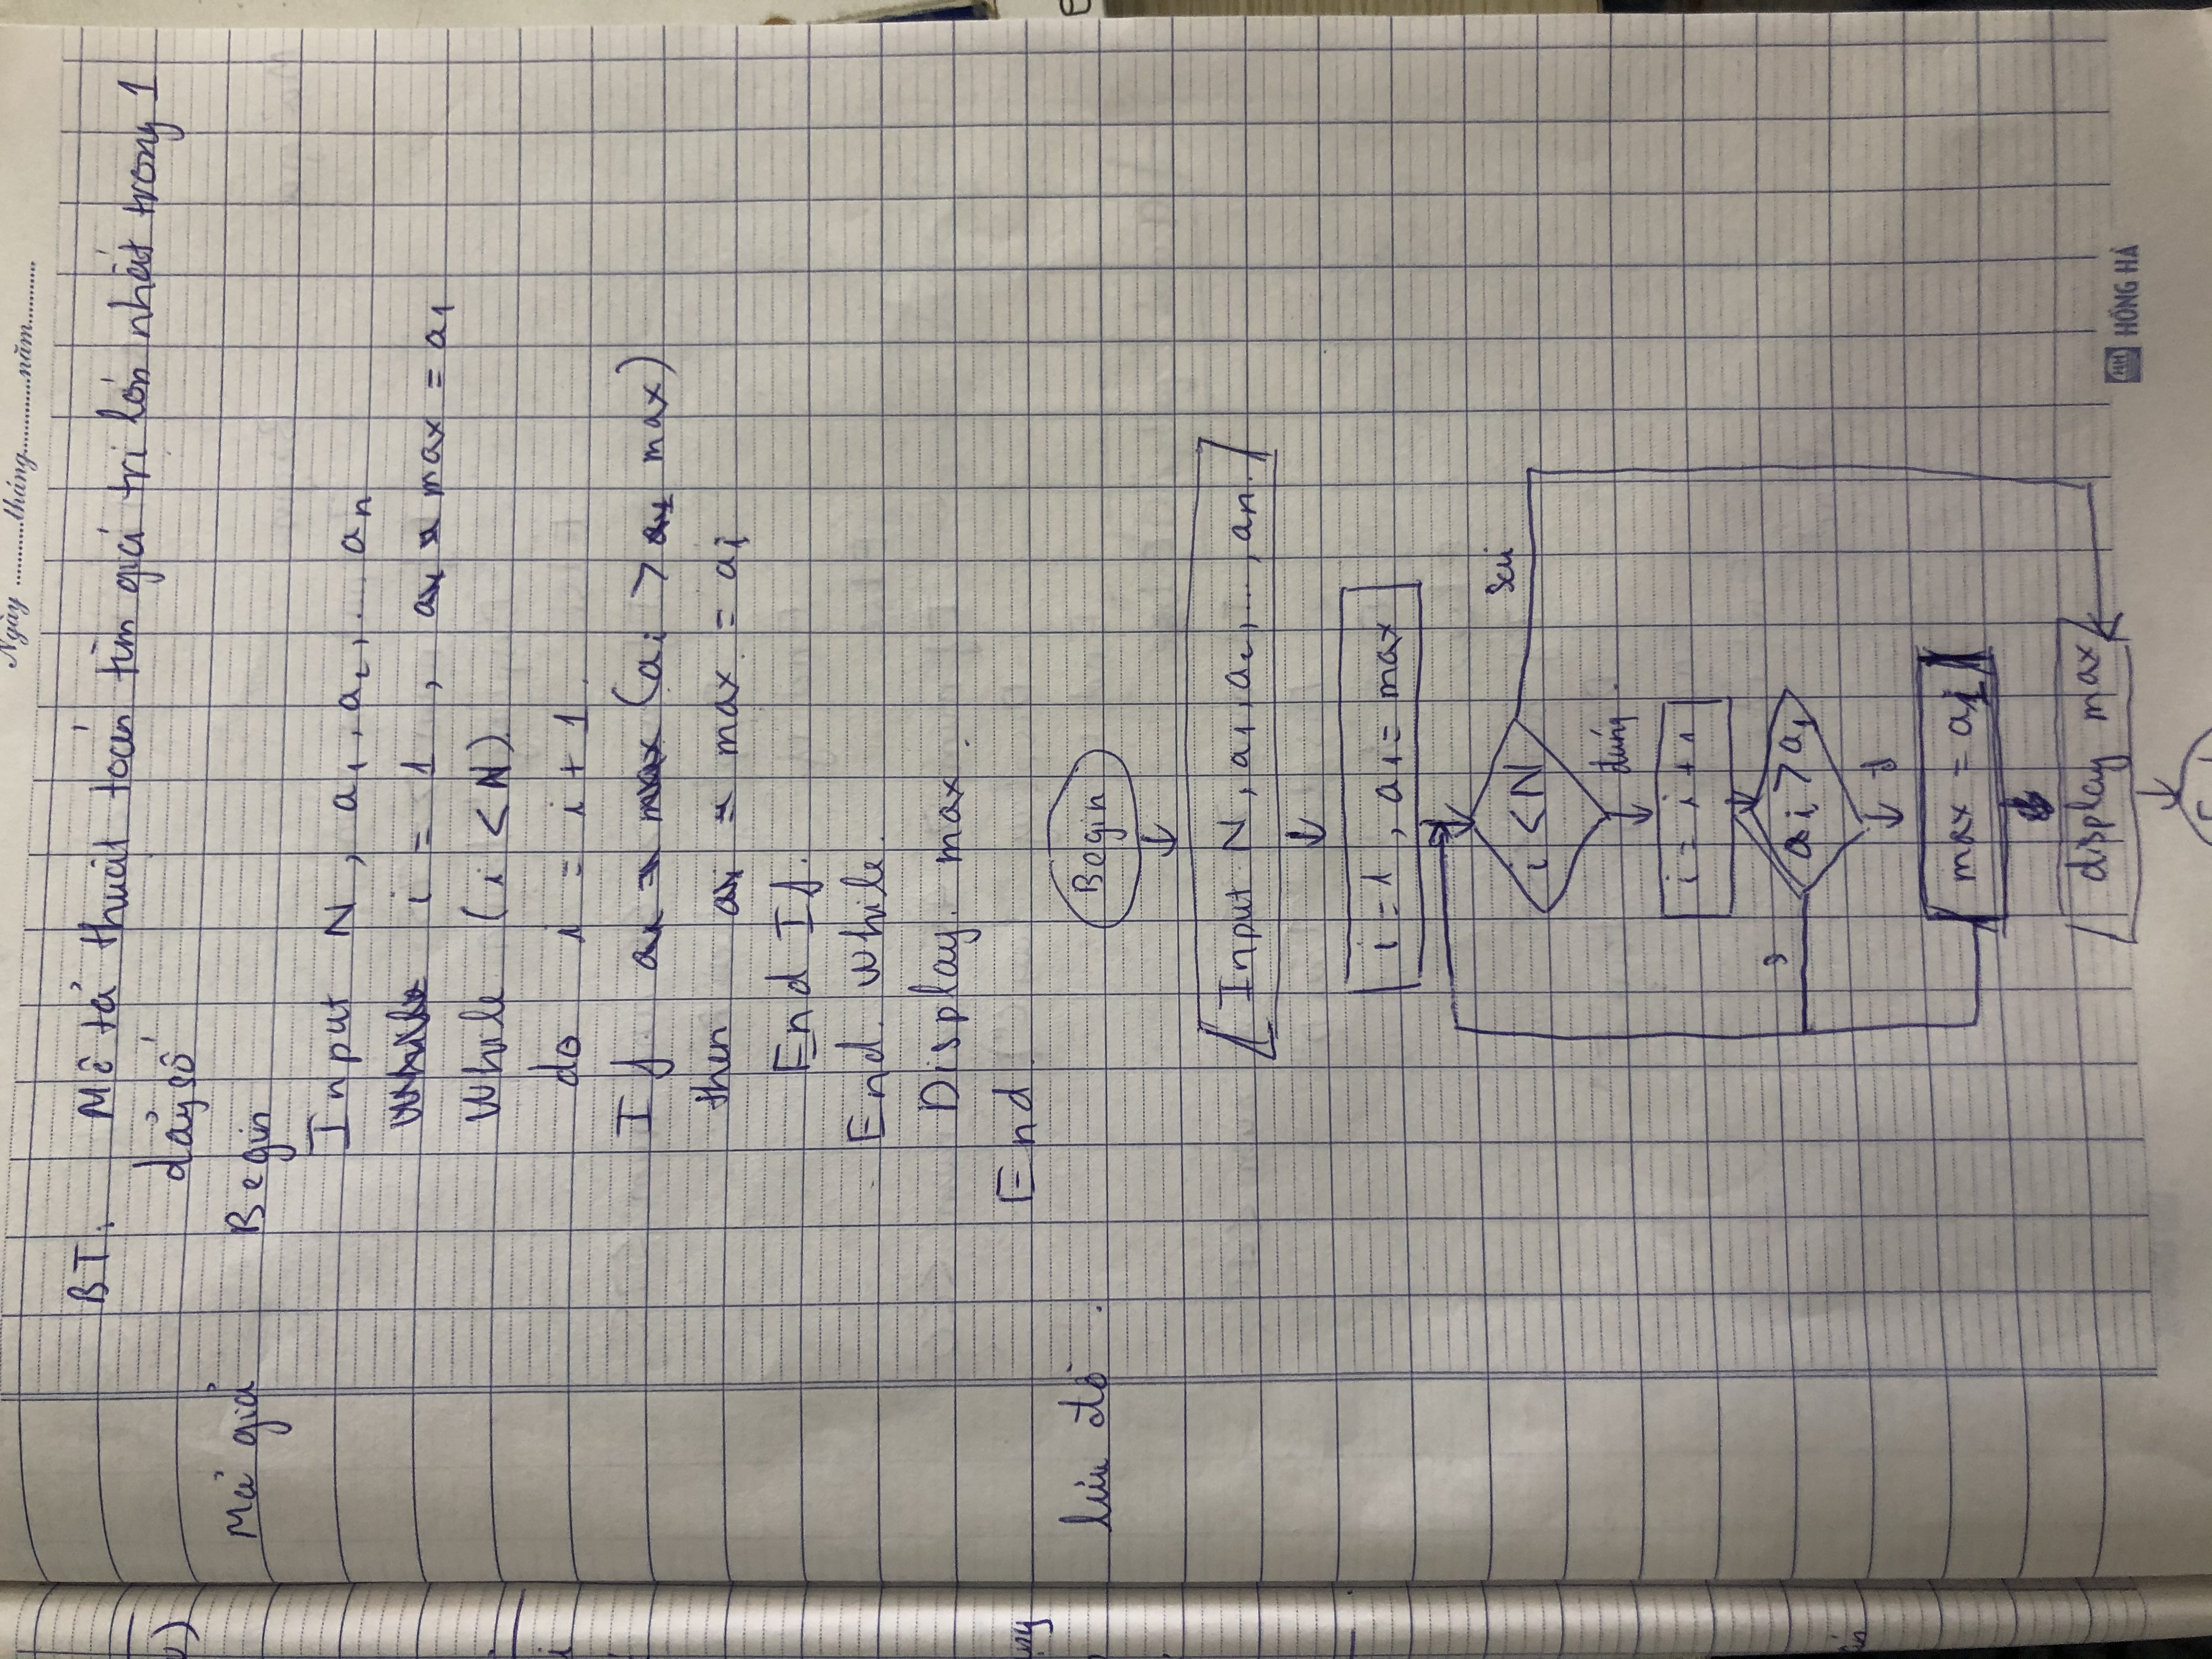 Ngày ...........tháng............năm...........
BT: Mô tả thuật toán tìm giá trị lớn nhất trong 1
dảy số
Mả giả
Begin
Input N, a1, a2, ... an
i = 1, max = a1
While (i < N)
do i = i + 1
If (ai > max)
then max = ai
End If.
End. While.
Display. max.
End.
lưu đồ.
Begin
Input N, a1, a2, ..., an.
i = 1, a1 = max
i < N
sai
đúng
i = i + 1
ai > a1
s
đ
max = ai
display max
HH HỒNG HÀ
End